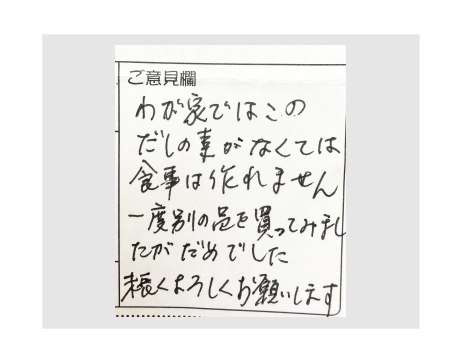 ご意見欄
わが家ではこの
だしの素がなくては
食事は作れません
一度別の品を買ってみまし
たがだめでした
末長くよろしくお願いします